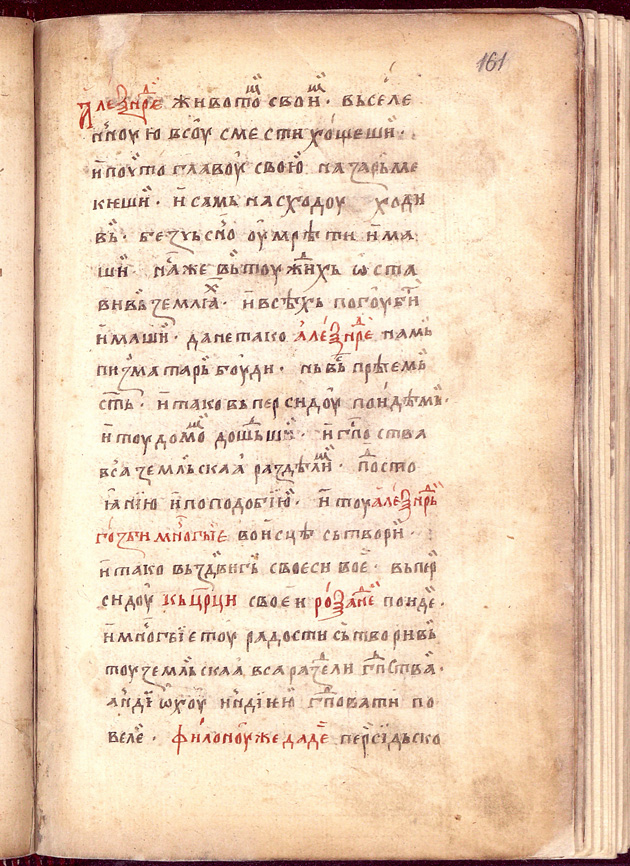 161
Але́ѯн͛дре животѡⷨ свои̏ⷨ . въселе
н̏ноую всоу смести хо́щеши̏ .
и̏ почто главоу свою̏ на зарь̏ ме
кнеши̏ . и̏ самь на сходоу ходи
въ̏ . без̾ьсно оу̏мрѣти и̏ма
ши̏ . на̏же въ̏ тоужи́хь ѡ̏ста
вивь̏ землꙗⷯ . и̏ въсѣхь погоуби́ти
и̏маши̏ . да не тако але́ѯн͛дре намь̏
пизматарь̏ боуди . нь въ̏ прѣемь̏
сть̏ . и̏ тако въ персидоу поидѣмь̏ .
и̏ тоу домѡⷨ дошъши̏ⷨ . и̏ гⷭ҇пдоства
всꙗ земльскаа раздѣли̏ⷨ . по̏ досто
ꙗнїю и̏ по подобїю̏ . и̏ тоу але́ѯн͛дрь̏
го́зби мно̏гые воисцѣ сьтвори̏ .
и̏ тако въздвигъ̏ своеси вое̏ . въ пер
сидоу къ цр҃ци своеи ро́ѯанⷣе̏ поиде .
и̏ мно̏геїе тоу радости сьтворивь̏
тоу земльскаа всꙗ раздели гⷭ҇пдства̏ .
анді̏ѡ̏хоу индїю̏ гⷭ҇пдовати по
веле̏ . фи́лоноу же даде̏ персїдьско